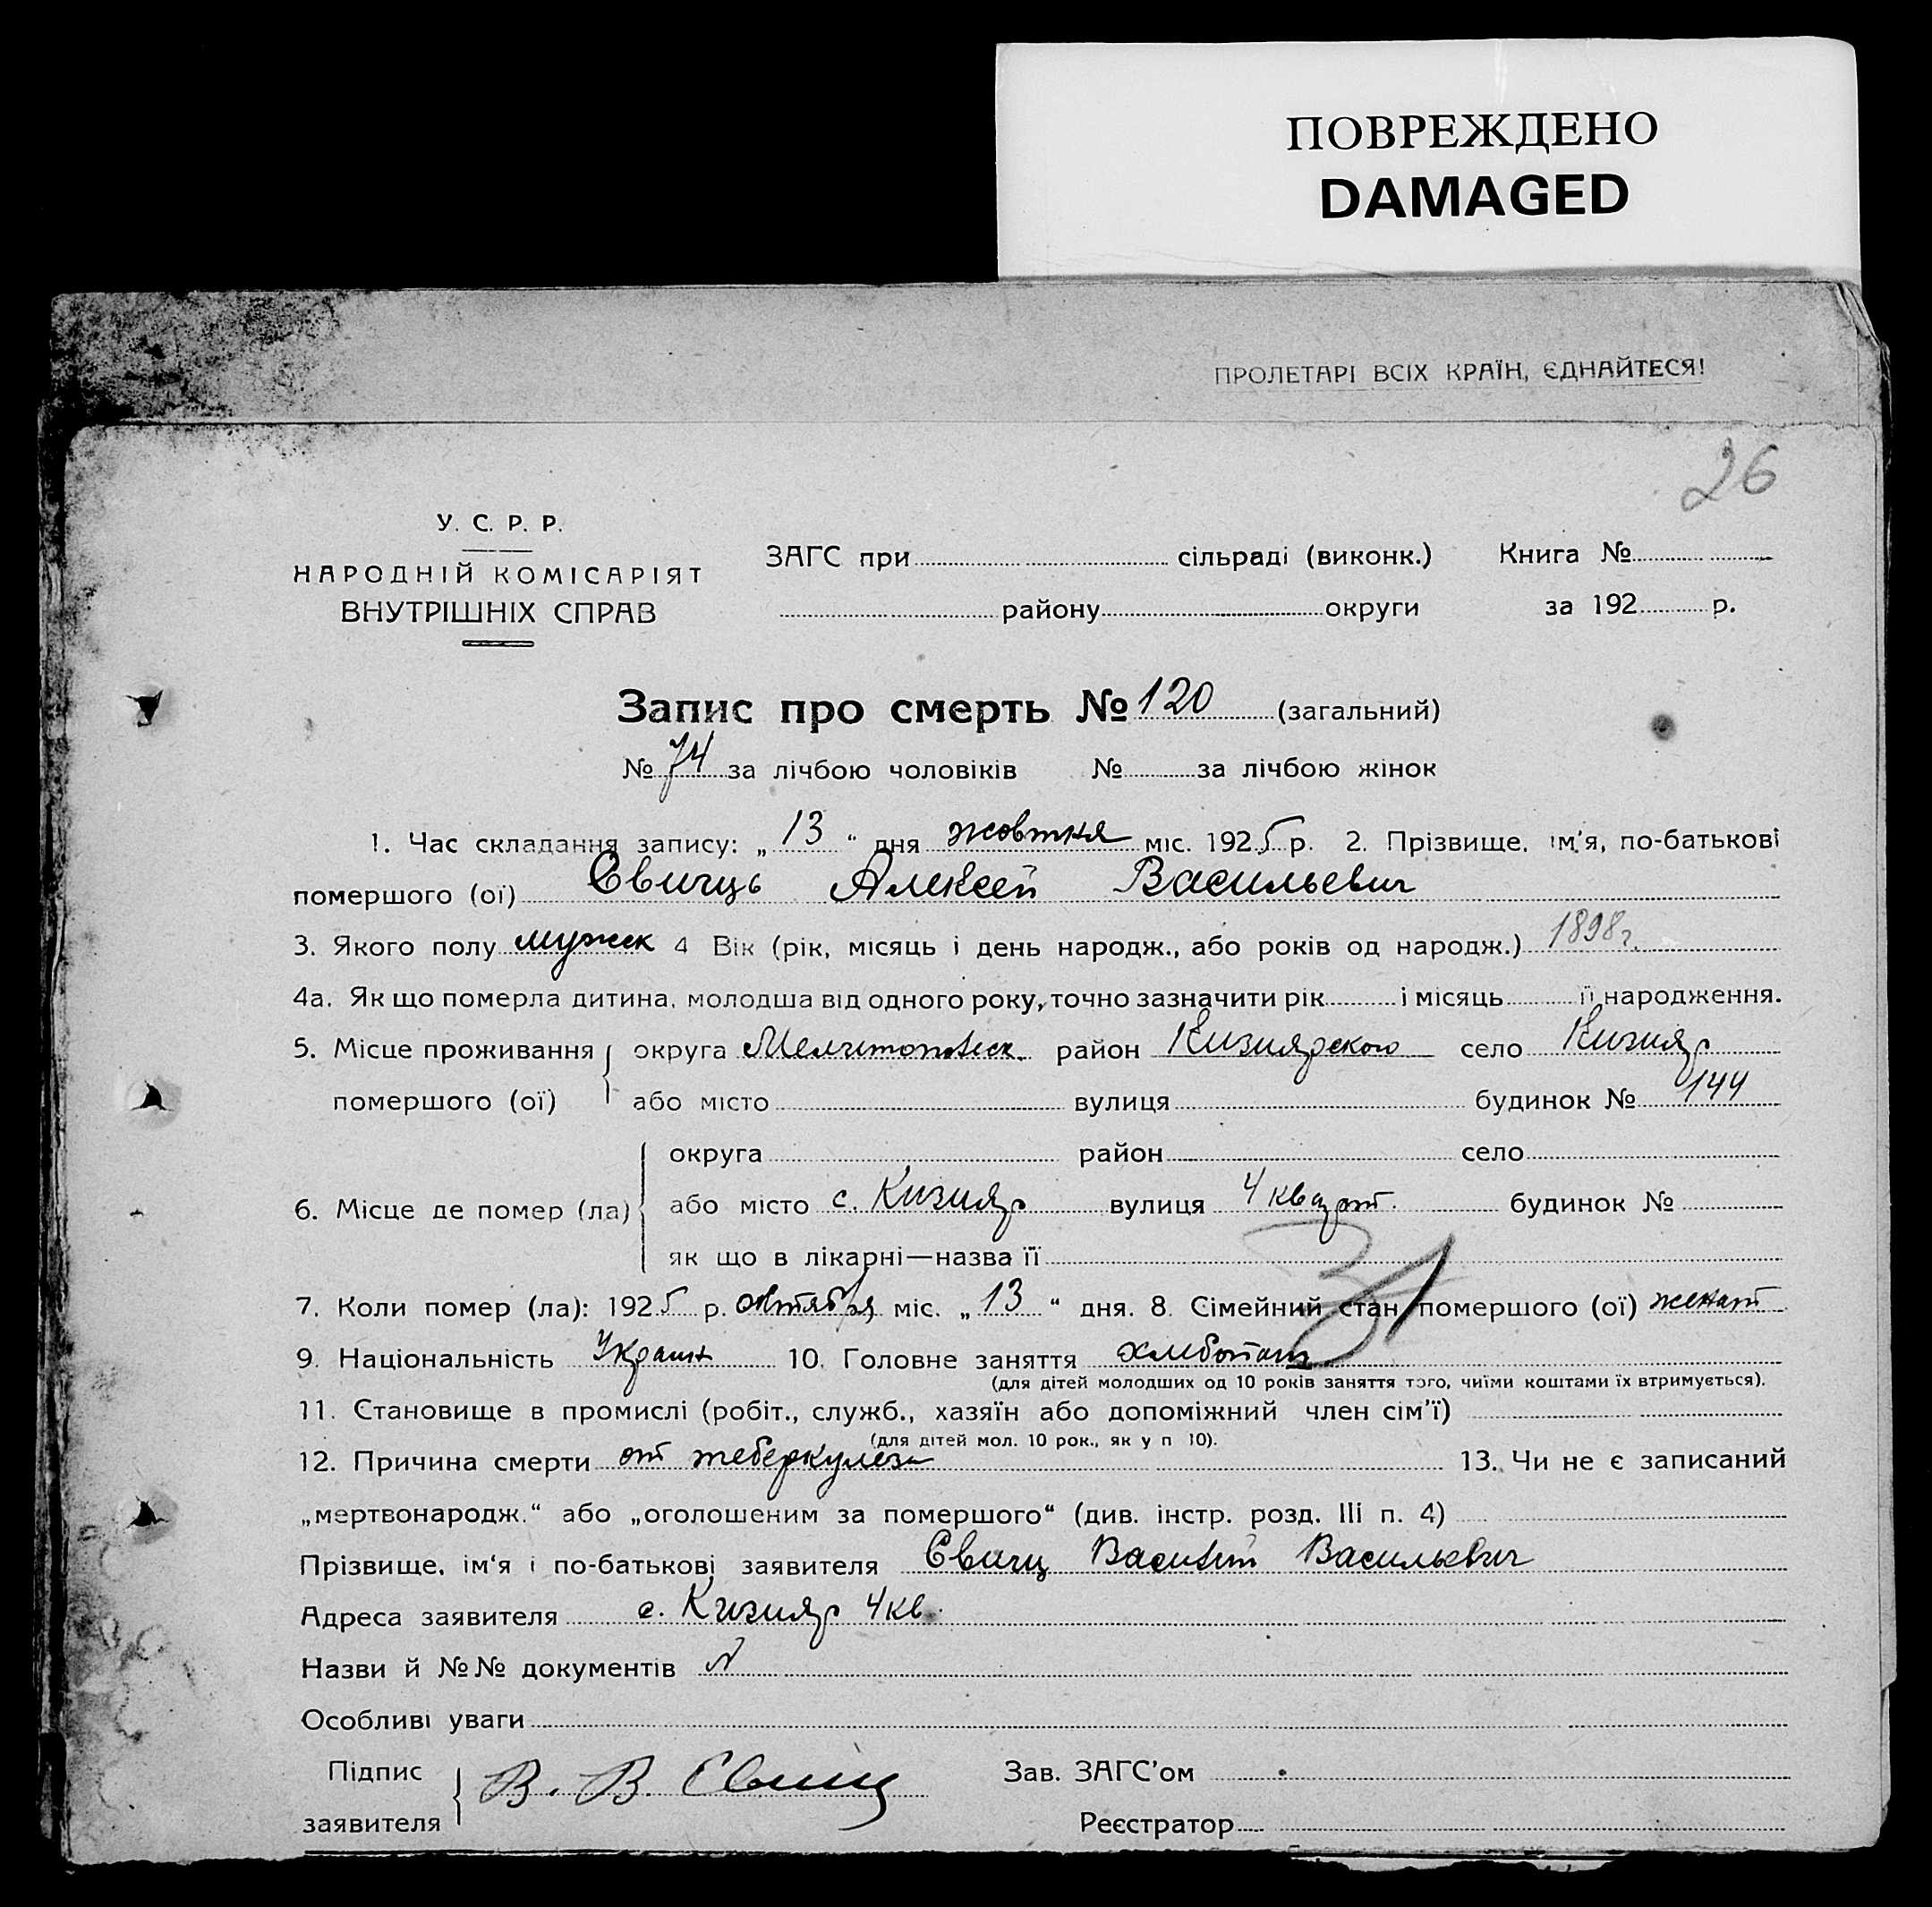 ПОВРЕЖДЕНО
DAMAGED
ПРОЛЕТАРІ ВСІХ КРАЇН, ЄДНАЙТЕСЯ!
26
У. С. Р. Р.
НАРОДНІЙ КОМІСАРІЯТ
ВНУТРІШНІХ СПРАВ
ЗАГС при сільраді (виконк.) Книга №
району округи за 192 р.
Запис про смерть № 120 (загальний)
№ 74 за лічбою чоловіків № за лічбою жінок
1. Час складання запису: „13“ дня жовтня міс. 1925 р. 2. Прізвище, ім'я, по-батькові
помершого (ої) Евичць Алексей Васильевич
3. Якого полу мужск 4 Вік (рік, місяць і день народж., або років од народж.) 1898 г.
4а. Як що померла дитина, молодша від одного року, точно зазначити рік і місяць її народження.
5. Місце проживання округа Мелитопольск. район Кизиярского село Кизияр
помершого (ої) або місто вулиця будинок № 144
округа район село
6. Місце де помер (ла) або місто с. Кизияр вулиця 4 кварт. будинок №
як що в лікарні—назва її
31
7. Коли помер (ла): 1925 р. октября міс. „13“ дня. 8. Сімейний стан помершого (ої) женат
9. Національність Украин 10. Головне заняття хлебопаш
(для дітей молодших од 10 років заняття того, чиїми коштами їх втримується).
11. Становище в промислі (робіт., служб., хазяїн або допоміжний член сім'ї)
(для дітей мол. 10 рок., як у п 10).
12. Причина смерти от теберкулеза 13. Чи не є записаний
„мертвонародж.“ або „оголошеним за помершого“ (див. інстр. розд. III п. 4)
Прізвище, ім'я і по-батькові заявителя Евичц Василий Васильевич
Адреса заявителя с. Кизияр 4 кв.
Назви й №№ документів
Особливі уваги
Підпис В. В. Евичц Зав. ЗАГС'ом
заявителя Реєстратор